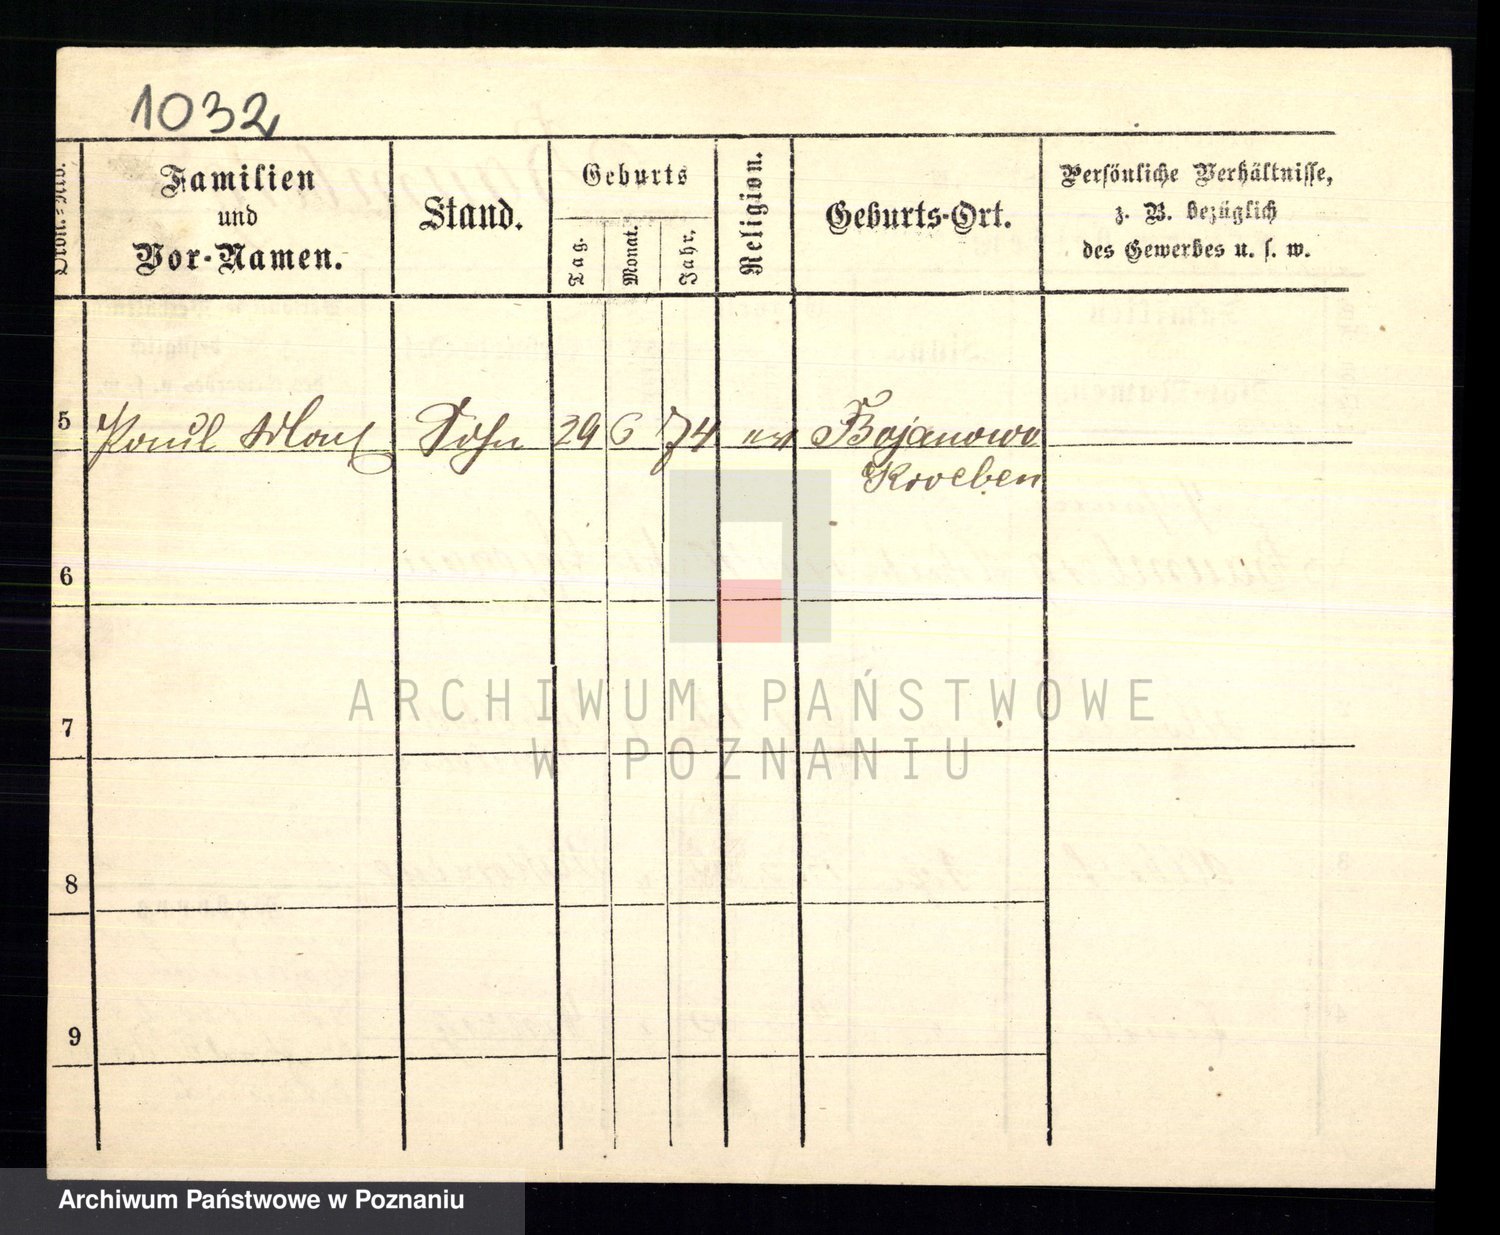 1032
Ordn.-Nro.
Familien
und
Vor-Namen.
Stand.
Geburts
Tag.
Monat.
Jahr.
Religion.
Geburts-Ort.
Persönliche Verhältnisse,
z. B. bezüglich
des Gewerbes u. s. w.
5 Paul Max Sohn 29 6 74 ev Bojanowo
Kroeben
6
7
8
9
ARCHIWUM PAŃSTWOWE
W POZNANIU
Archiwum Państwowe w Poznaniu